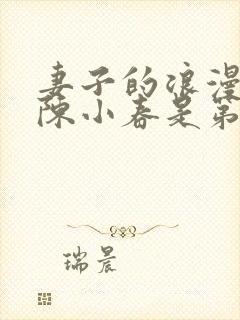 妻子的浪漫
陈小春是第
瑞晨